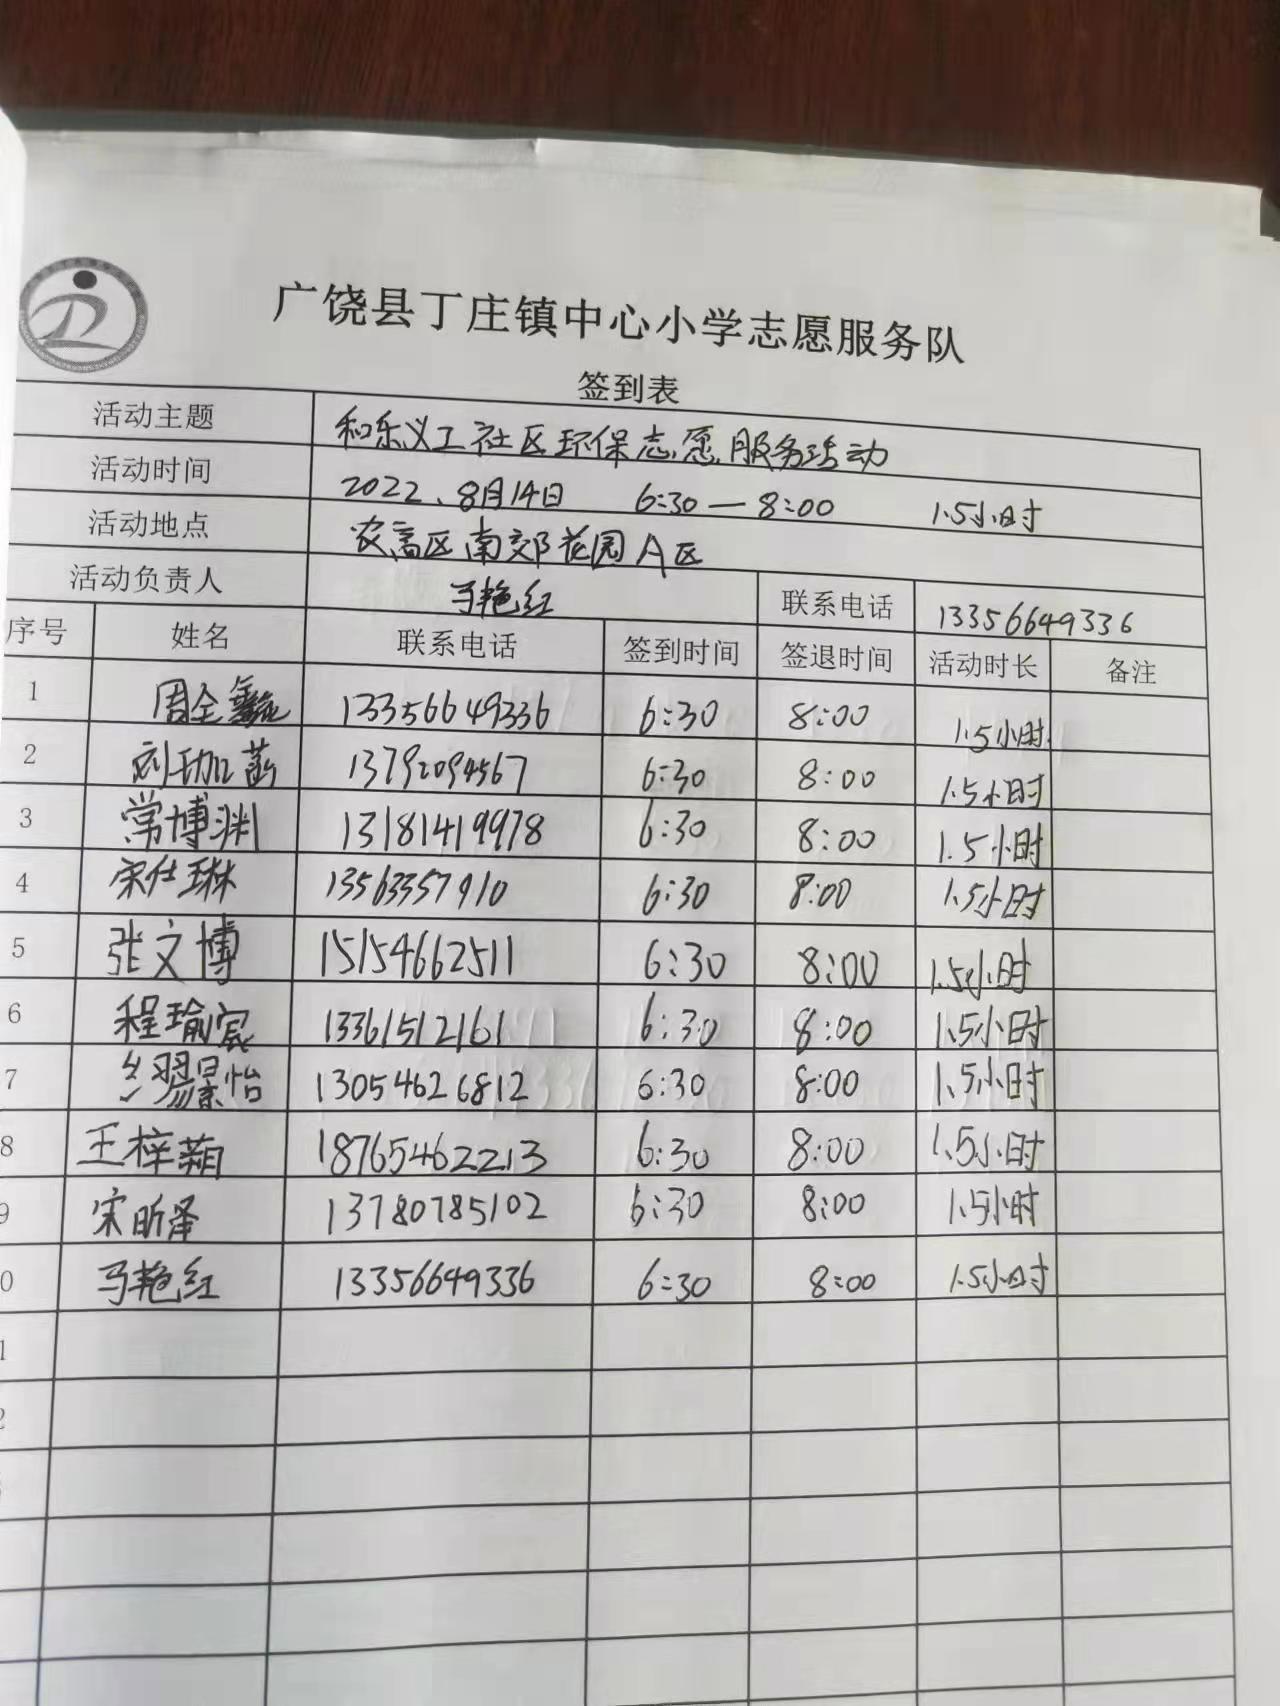 广饶县丁庄镇中心小学志愿服务队
签到表
活动主题 和乐义工社区环保志愿服务活动
活动时间 2022、8月14日 6:30—8:00 1.5小时
活动地点 农高区南郊花园A区
活动负责人 马艳红 联系电话 13356649336
序号 姓名 联系电话 签到时间 签退时间 活动时长 备注
1 周全鑫 13356649336 6:30 8:00 1.5小时
2 刘 13792094567 6:30 8:00 1.5小时
3 常博渊 13181419978 6:30 8:00 1.5小时
4 宋仕琳 13563357910 6:30 8:00 1.5小时
5 张文博 15154662511 6:30 8:00 1.5小时
6 程瑜宸 13361512161 6:30 8:00 1.5小时
7 怡 13054626812 6:30 8:00 1.5小时
8 王梓萌 18765462213 6:30 8:00 1.5小时
9 宋昕泽 13780785102 6:30 8:00 1.5小时
0 马艳红 13356649336 6:30 8:00 1.5小时
1
2